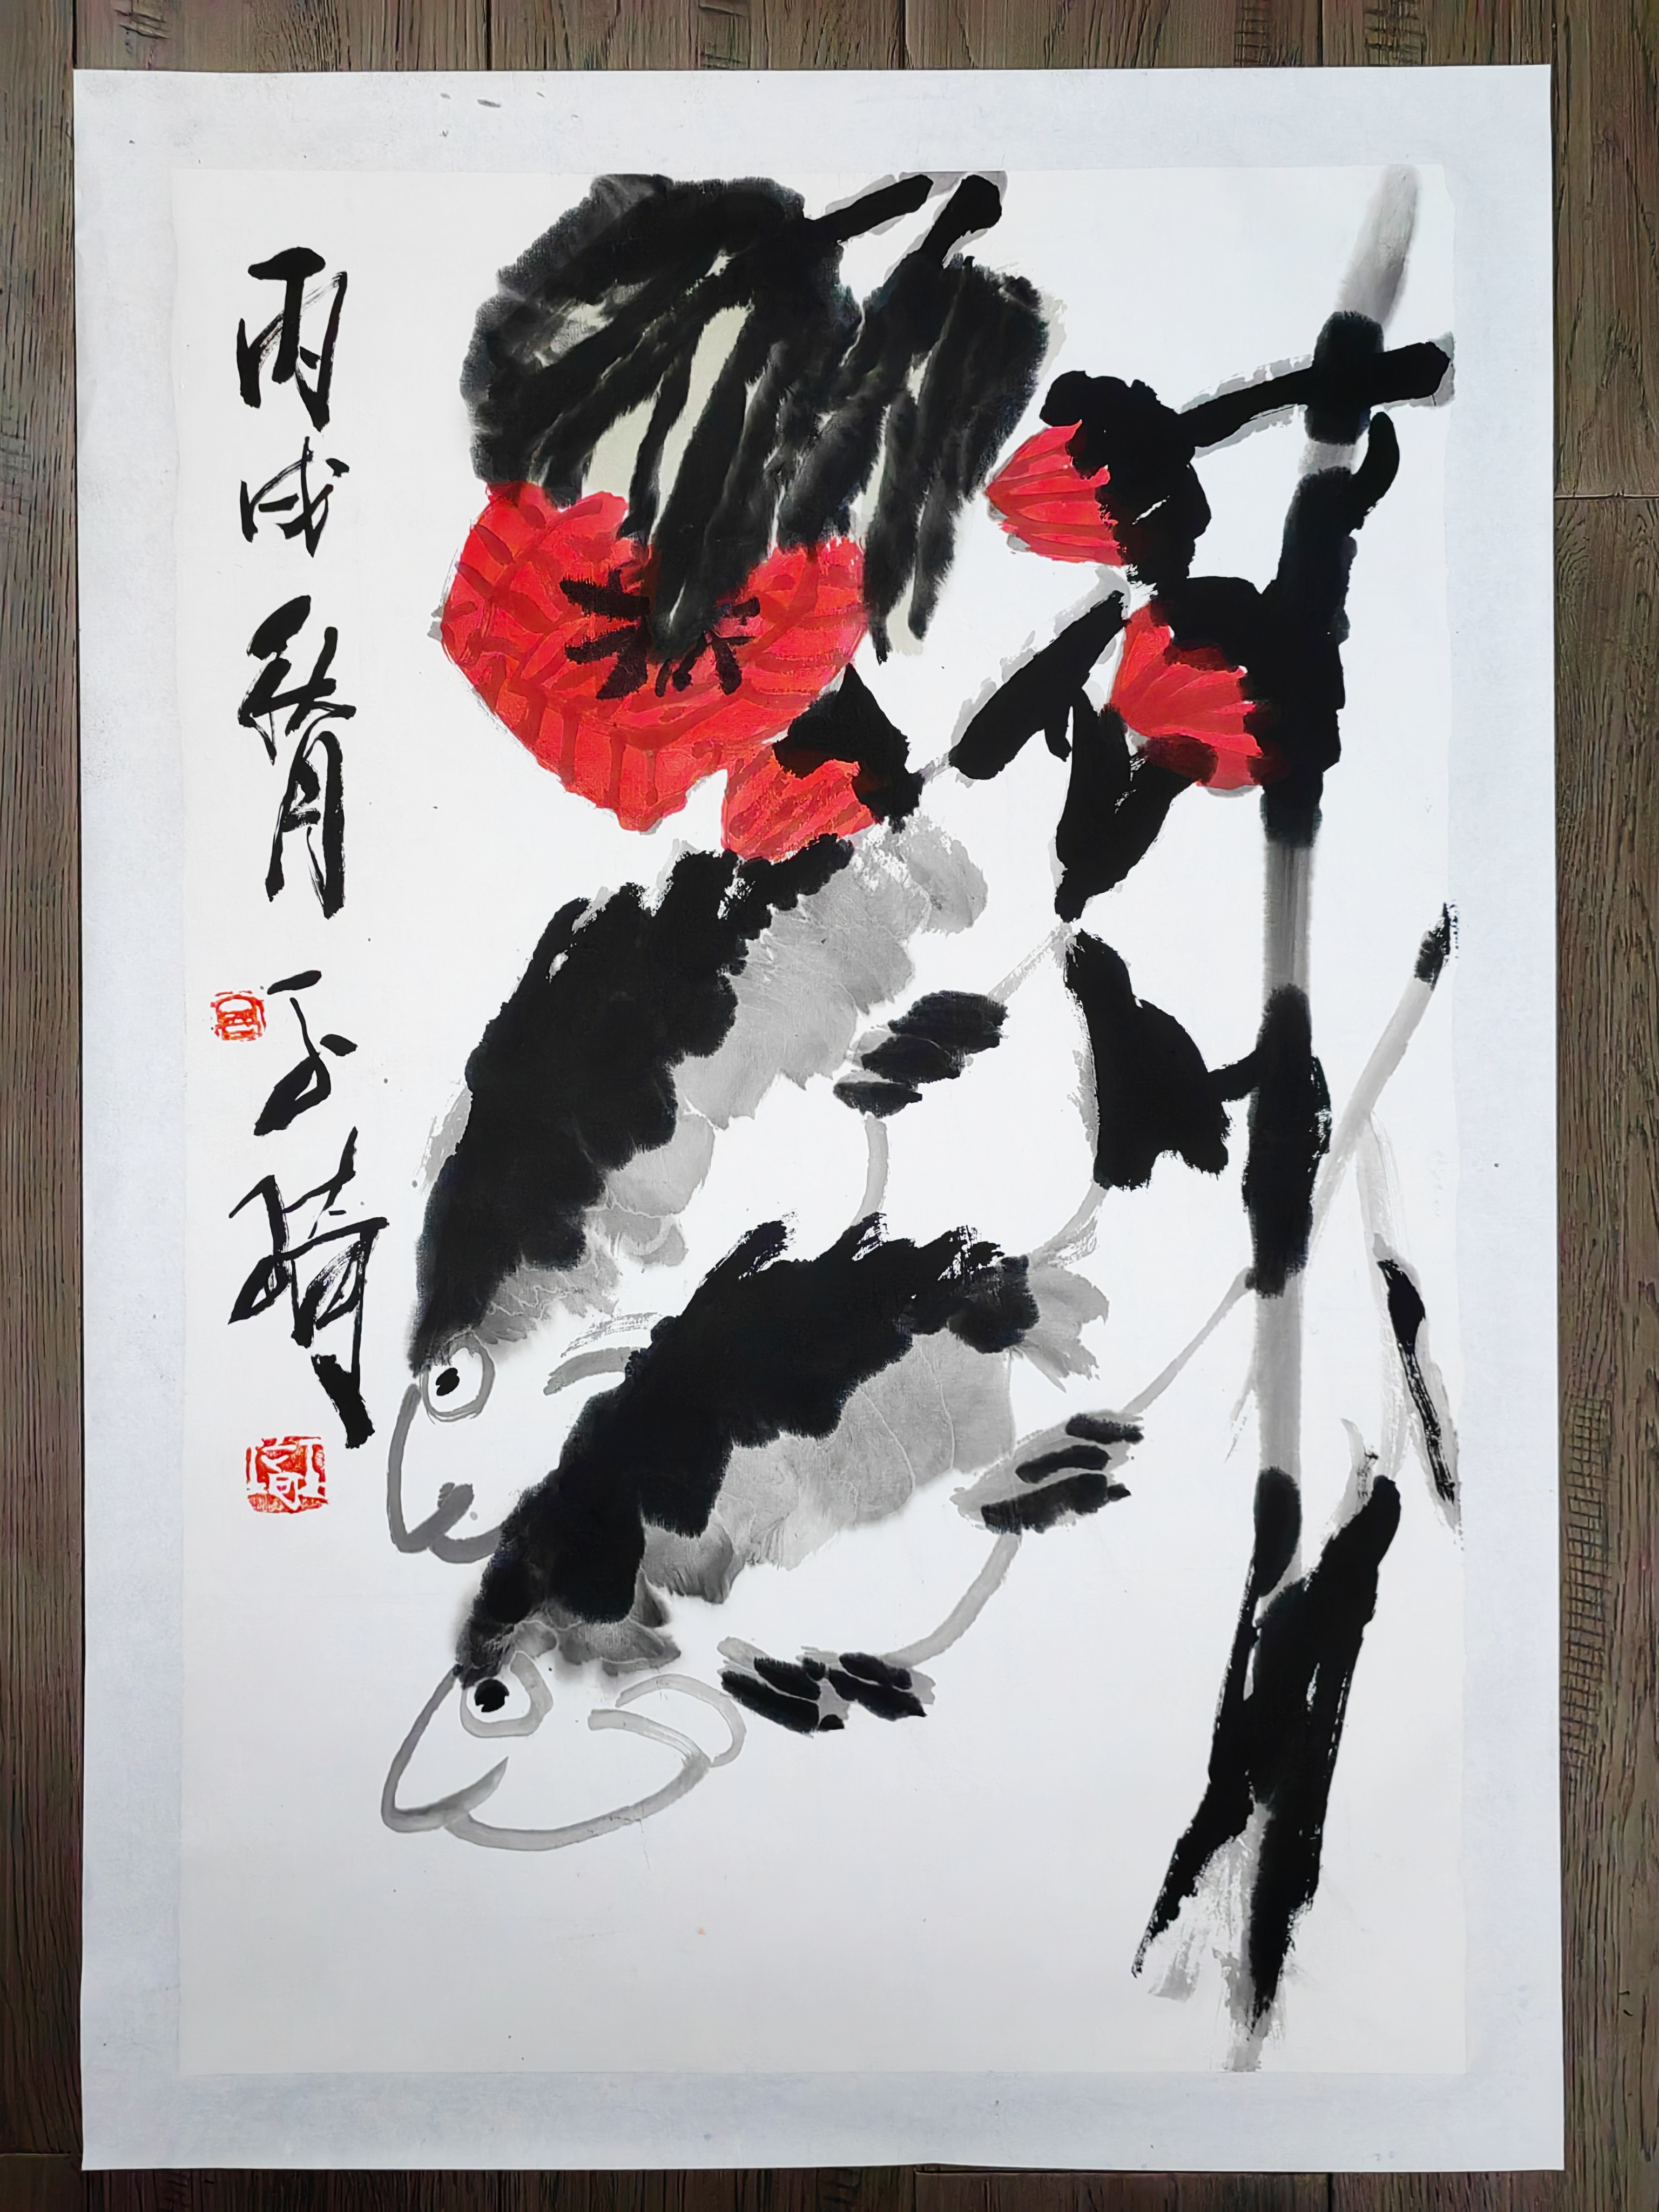 丙戌秋月子晴